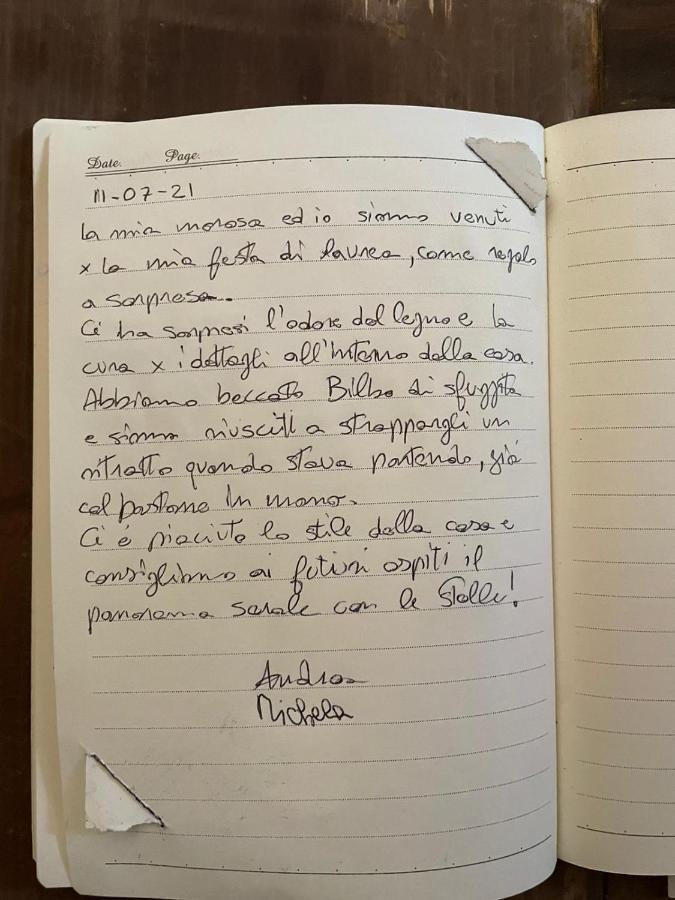 Date. Page.
11-07-21
la mia morosa ed io siamo venuti
x la mia festa di laurea, come regalo
a sorpresa.
Ci ha sorpresi l'odore del legno e la
cura x i dettagli all'interno della casa.
Abbiamo beccato Bilbo di sfuggita
e siamo riusciti a strappargli un
ritratto quando stava partendo, già
col bastone in mano.
Ci è piaciuto lo stile della casa e
consigliamo ai futuri ospiti il
panorama serale con le stelle!
Andrea
Michela